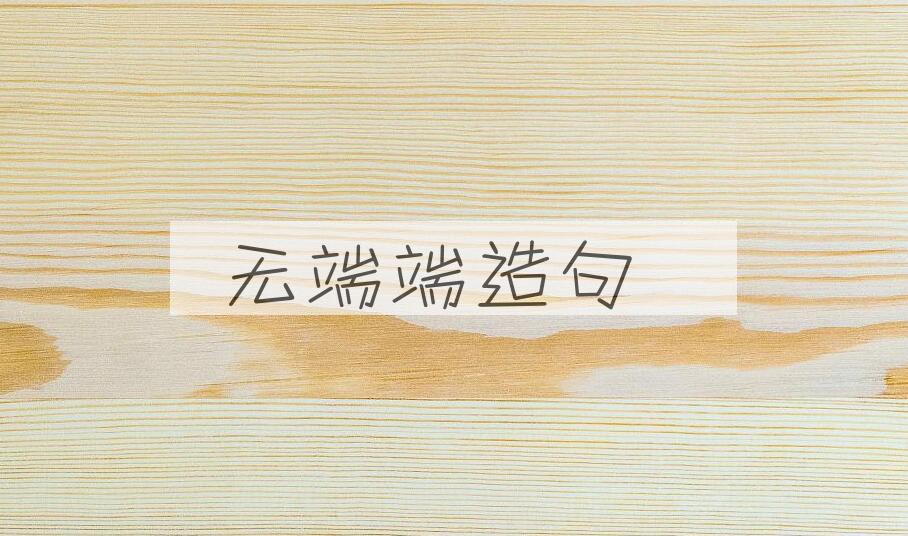 无端端造句